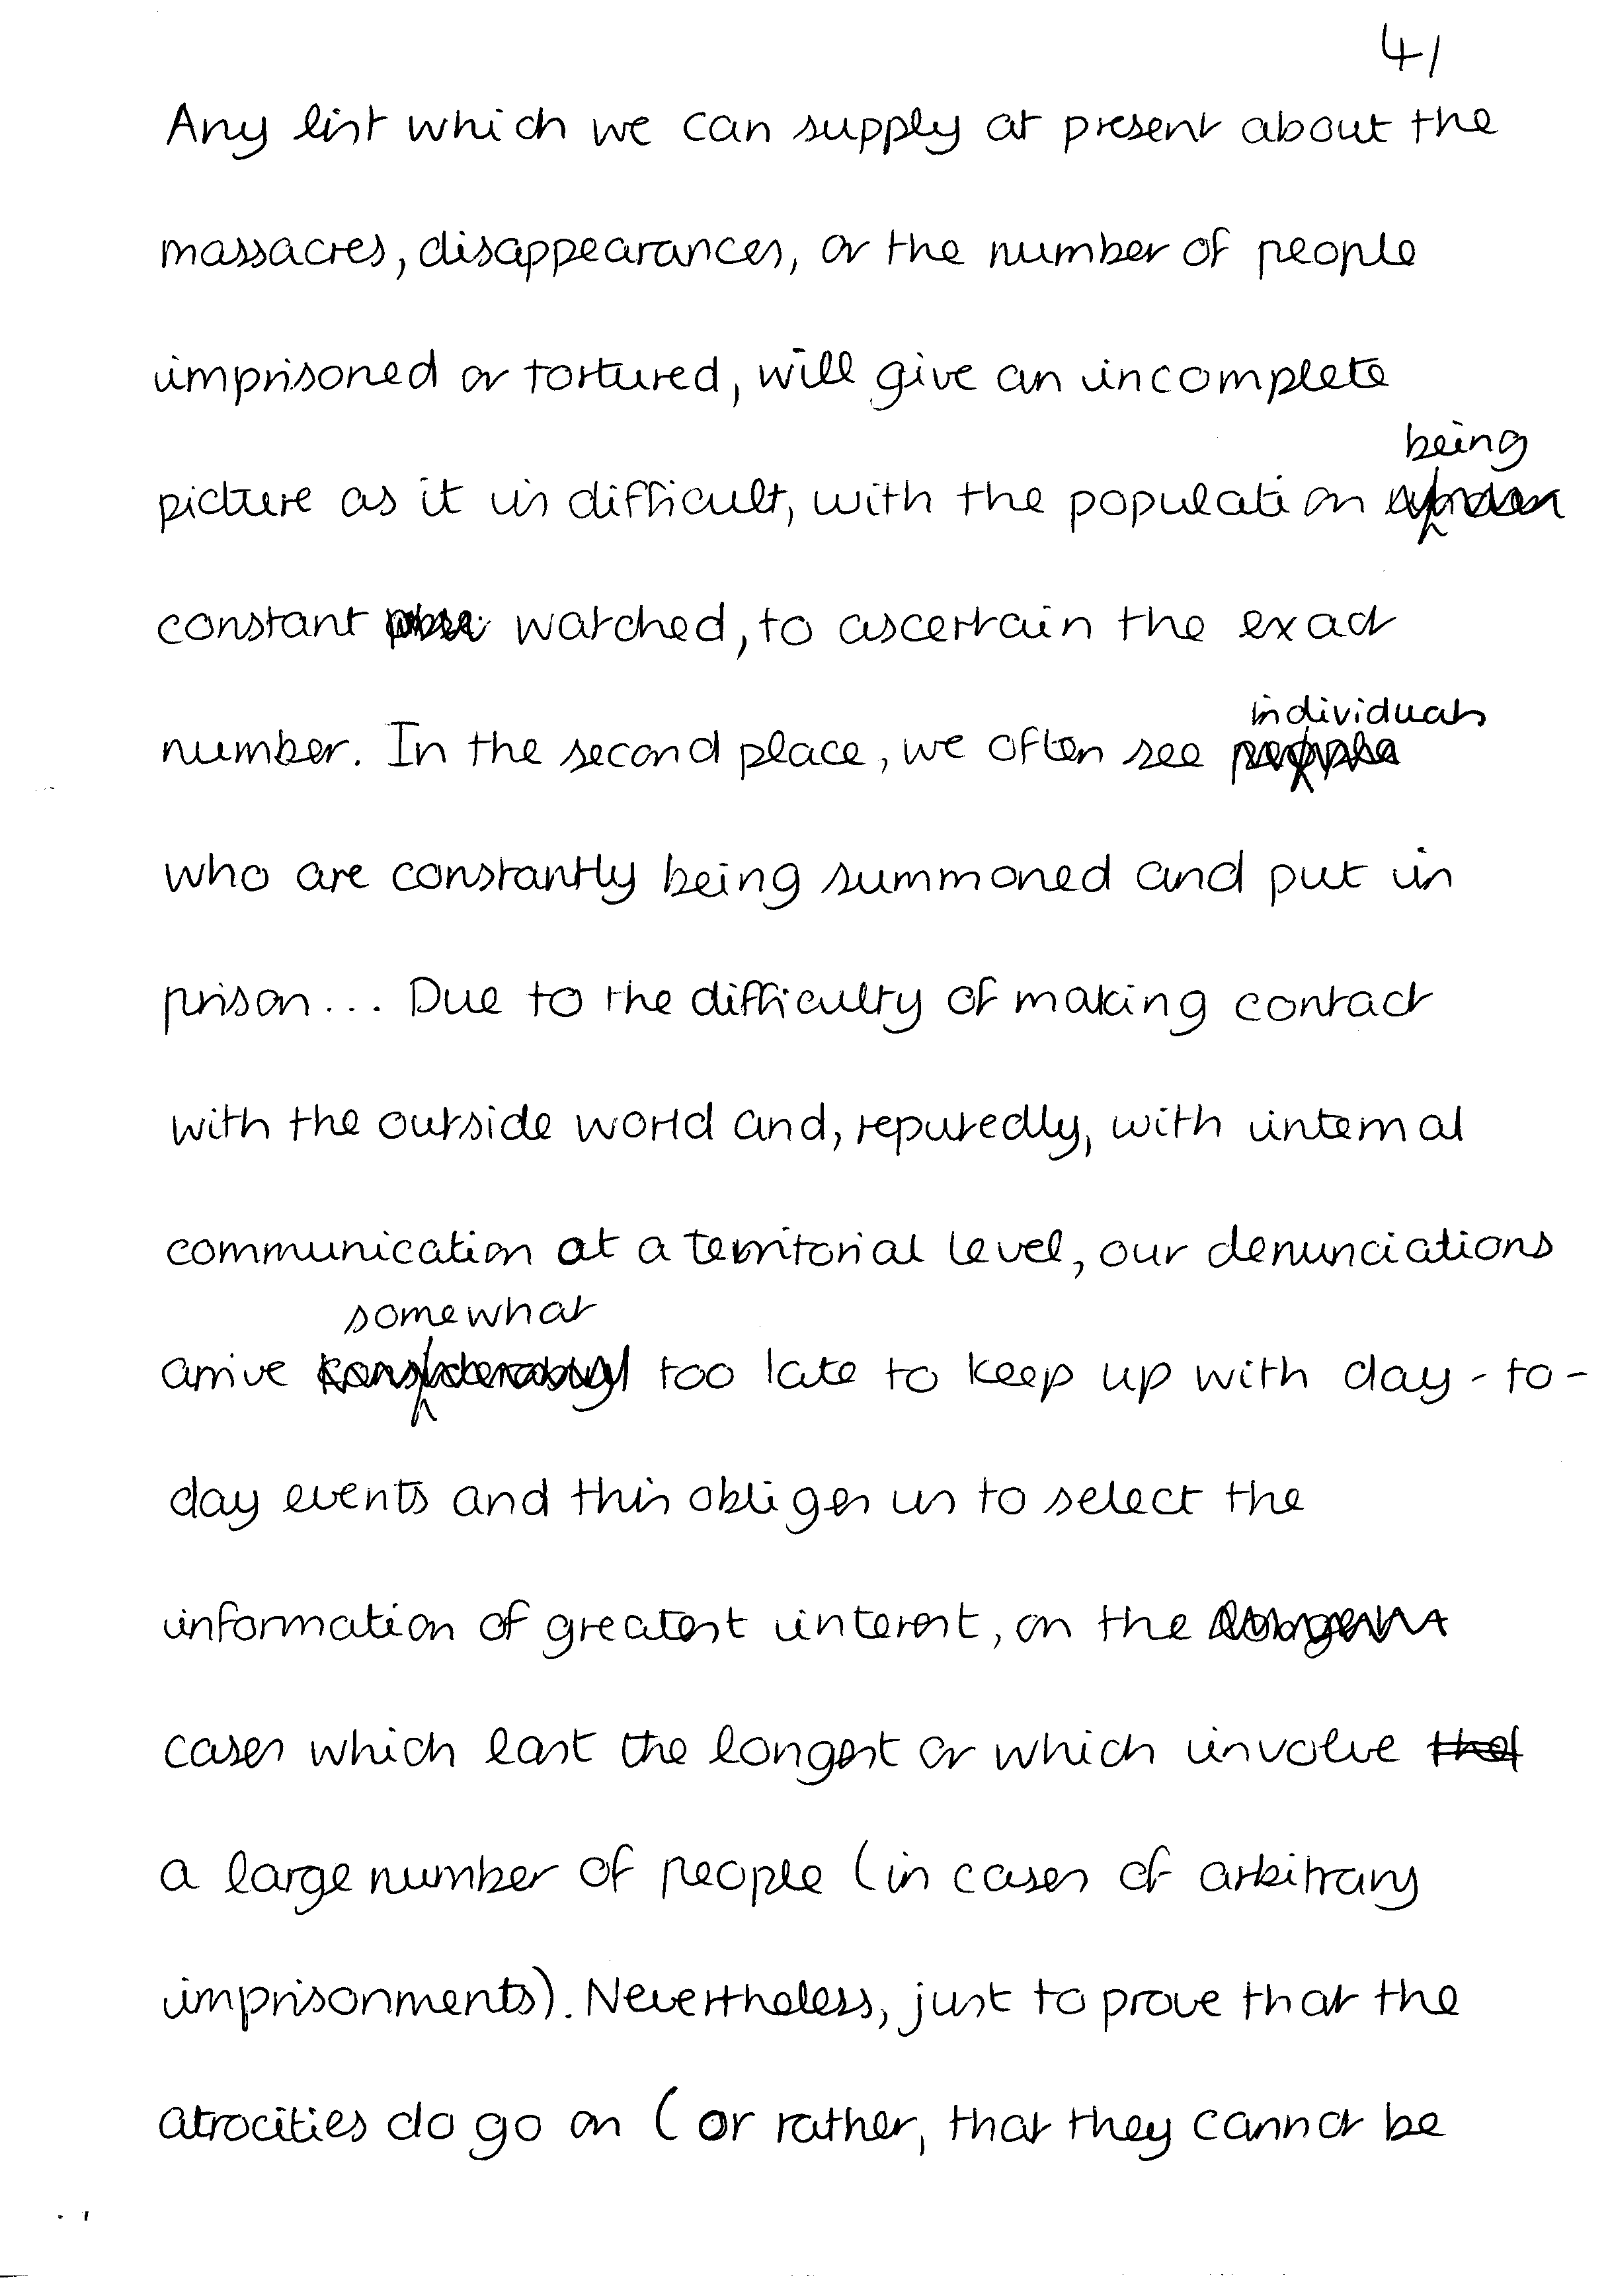 4/
Any list which we can supply at present about the
massacres, disappearances, or the number of people
imprisoned or tortured, will give an incomplete
being
picture as it is difficult, with the population
constant watched, to ascertain the exact
individuals
number. In the second place, we often see people
who are constantly being summoned and put in
prison... Due to the difficulty of making contact
with the outside world and, reputedly, with internal
communication at a territorial level, our denunciations
somewhat
arrive considerably too late to keep up with day-to-
day events and this obliges us to select the
information of greatest interest, on the
cases which last the longest or which involve the
a large number of people (in cases of arbitrary
imprisonments). Nevertheless, just to prove that the
atrocities do go on (or rather, that they cannot be